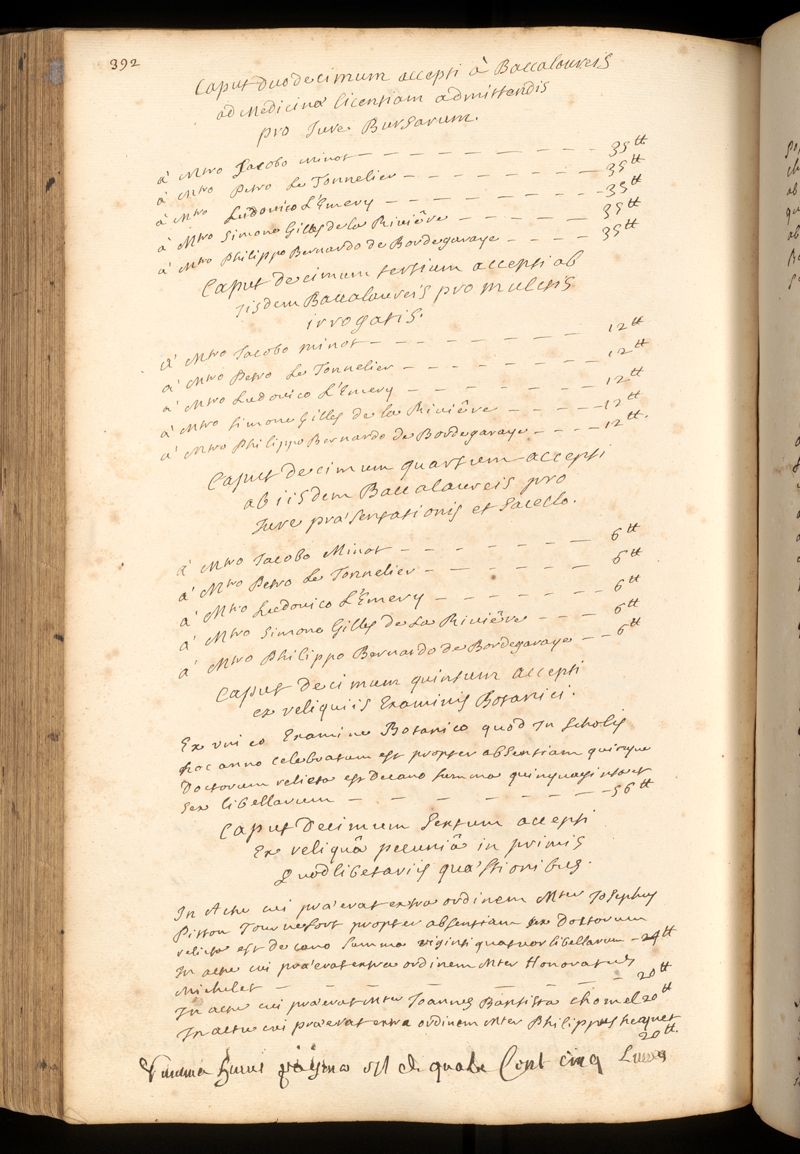 392
Caput duodecimum accepti à Baccalaureis
ad Medicinæ licentiam admittendis
pro Jure Bursarum.
à Mtro Jacobo Minot — — — — — — — — 35tt
à Mtro Petro Le Tonnelier — — — — — — — 35tt
à Mtro Ludovico L'Emery — — — — — — — 35tt
à Mtro Simone Gilles de la Riviêre — — — — — 35tt
à Mtro Philippo Bernardo de Bordegaraye — — — — 35tt
Caput decimum tertium accepti ab
iisdem Baccalaureis pro mulctis
irrogatis.
à Mtro Jacobo minot — — — — — — — 12tt
à Mtro Petro Le Tonnelier — — — — — — 12tt
à Mtro Ludovico L'Emery — — — — — — 12tt
à Mtro Simone Gilles de la Riviêre — — — — 12tt
à Mtro Philippo Bernardo de Bordegaraye — — — — 12tt.
Caput decimum quartum accepti
ab iisdem Baccalaureis pro
Jure præsentationis et Sacello.
à Mtro Jacobo Minot — — — — — — — 6tt
à Mtro Petro Le Tonnelier — — — — — — 6tt
à Mtro Ludovico L'Emery — — — — — — 6tt
à Mtro Simone Gilles de La Riviêre — — — — 6tt
à Mtro Philippo Bernardo de Bordegaraye — — 6tt
Caput decimum quintum accepti
ex reliquiis Examinis Botanici.
Ex unico Examine Botanico quod in Scholis
hoc anno celebratum est propter absentiam quinque
Doctorum relicta est Decano summa quinquaginta et
sex libellarum — — — — — — — 56tt
Caput Decimum Sextum accepti
Ex reliquâ pecuniâ in primis
Quodlibetariis quæstionibus.
In Actu cui præerat extra ordinem Mter Josephus
Pitton Tournefort propter absentiam sex Doctorum
relicta est decano summa viginti quatuor libellarum — 24tt
In actu cui præerat extra ordinem Mter Honoratus
Michelet — — — — — — — — 20tt
In actu cui præerat Mter Joannes Baptista Chomel 20tt
In actu cui præerat extra ordinem Mter Philippus hecquet
20tt.
Summa hujus paginæ est de quatre Cent cinq Livres